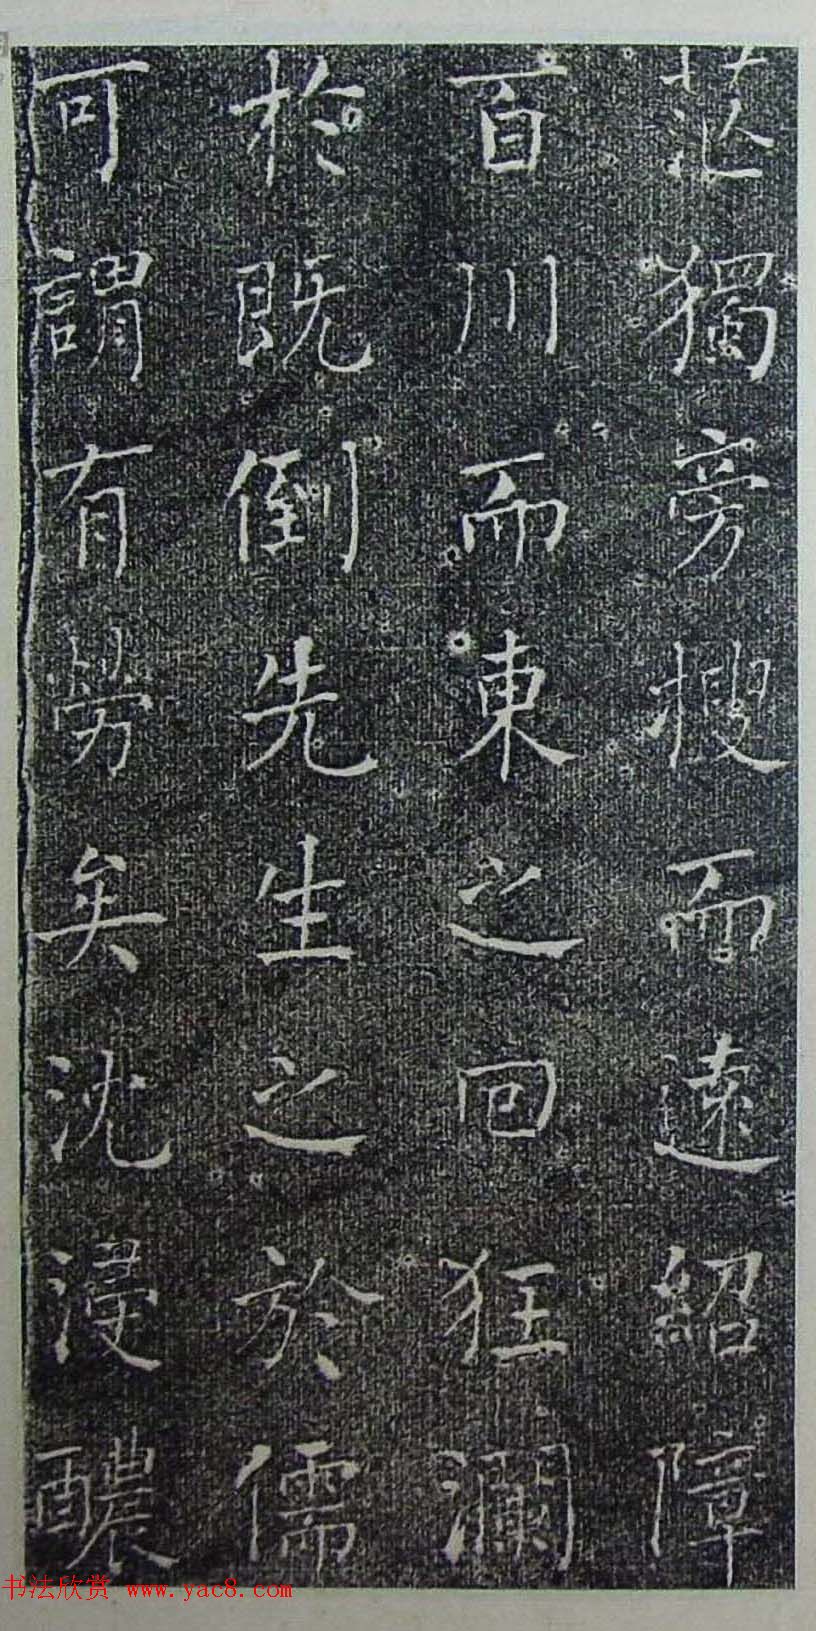 茫獨旁搜而遠紹障
百川而東之回狂瀾
於既倒先生之於儒
可謂有勞矣沈浸醲
书法欣赏 www.yac8.com